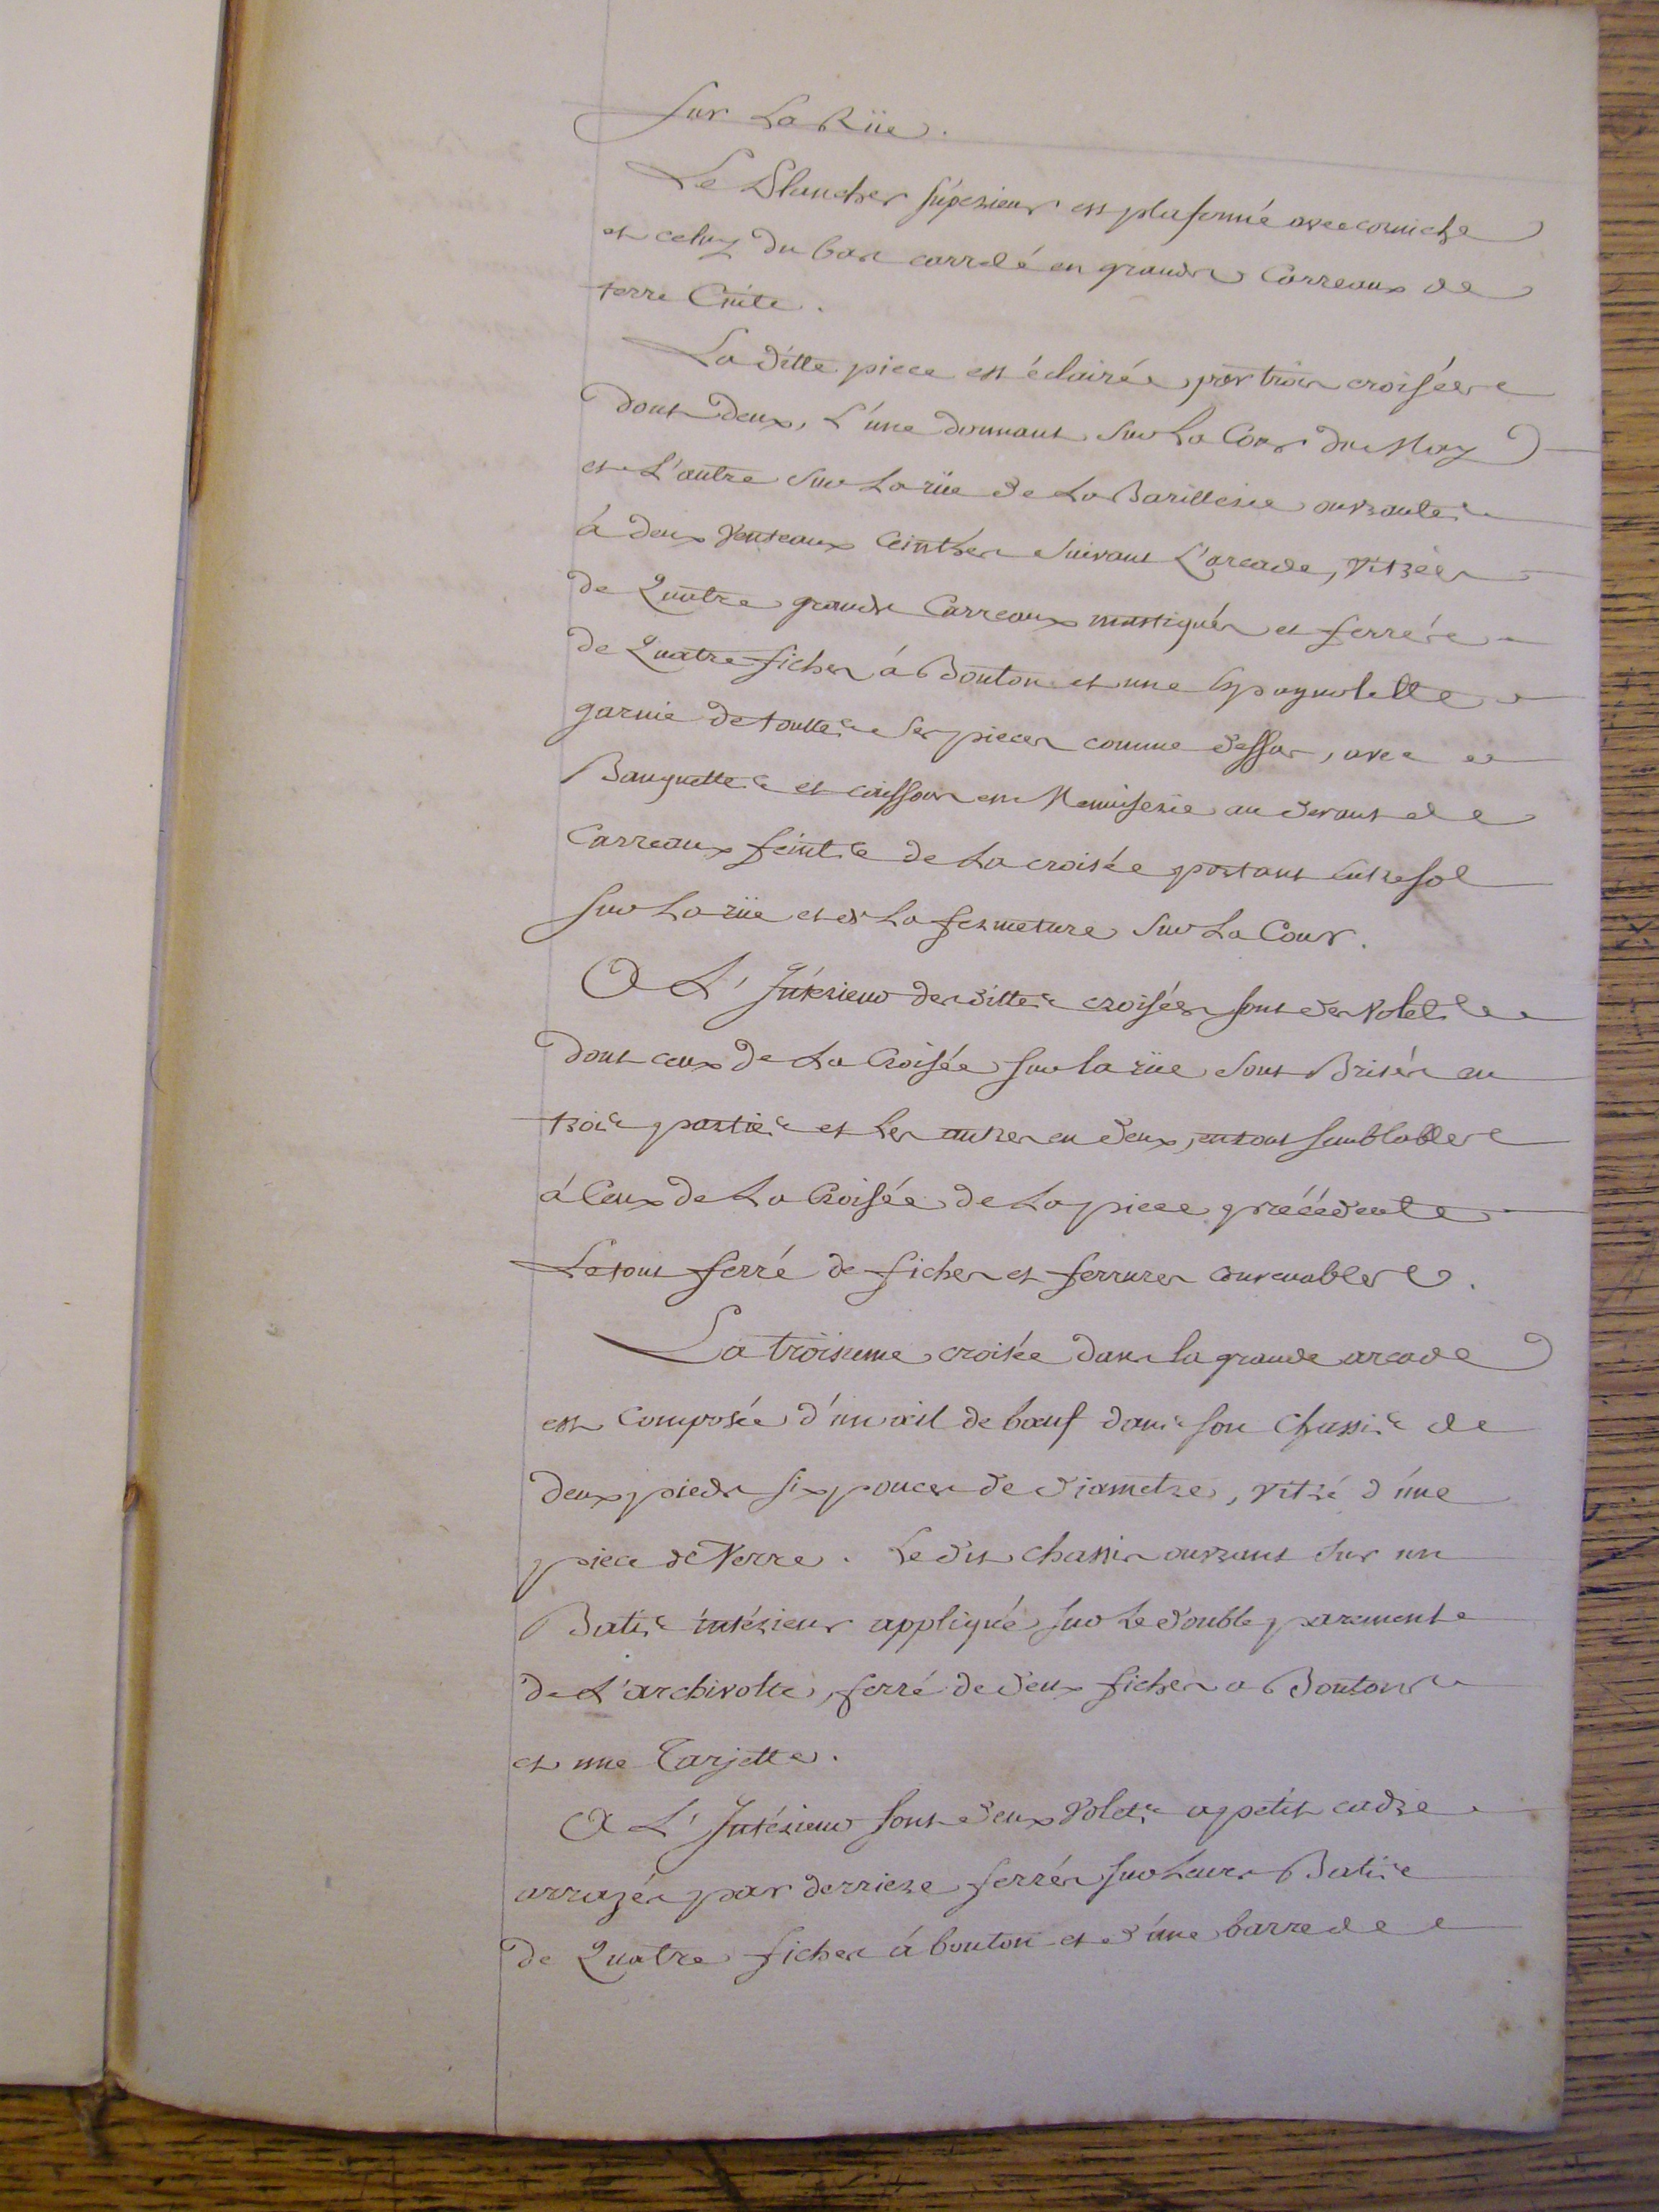 Sur La Rüe.
Le Plancher supérieur est plafonné avec corniche
et celuy du bas carrelé en grands Carreaux de
terre Cuite.
La ditte piece est éclairée par trois croisées
dont deux, L'une donnant sur La Cour du May
et L'autre sur La rüe de La Barillerie ouvrantes
à deux venteaux Ceintrés suivant L'arcade, vitrées
de Quatre grands Carreaux mastiqués et ferrées
de Quatre fiches à Bouton et une Espagnolette
garnie de touttes ses pieces comme dessus, avec
Banquettes et caissons en Menuiserie au devant de
Carreaux feints de La croisée portant entresol
sur La rüe et de La fermeture sur La Cour.
A L'Intérieur des dittes croisées sont des Volets
dont ceux de La Croisée sur la rüe sont Brisés en
trois parties et Les autres en deux, en tout semblables
à Ceux de La Croisée de La piece précédente
Le tout ferré de fiches et ferrures convenables.
La troisieme croisée dans la grande arcade
est Composée d'un œil de bœuf dans son Chassis de
deux pieds six pouces de diametre, vitré d'une
piece de Verre. Le dit chassis ouvrant sur un
Batis intérieur appliqué sur Le double parement
de L'archivolte, ferré de deux fiches a Boutons
et une Targette.
A L'Intérieur sont deux Volets a petit cadre
arrazés par derriere ferrés sur Leurs Batis
de Quatre fiches à bouton et d'une barre de